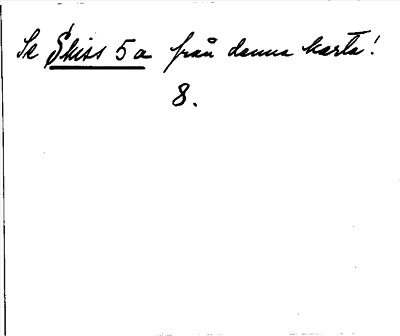 Se Skiss 5a från denna karta!
8.